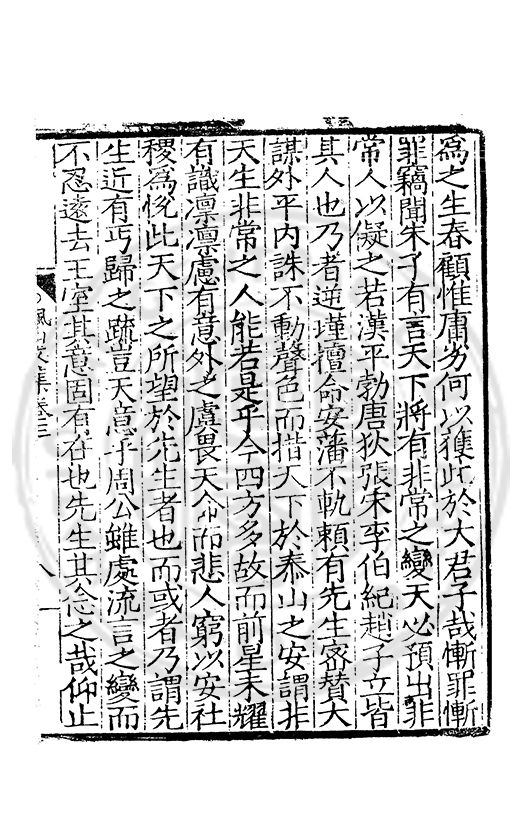 為之生春顧惟庸劣何以獲此於大君子哉慚罪慚
罪竊聞朱子有言天下將有非常之變天必預出非
常人以儗之若漢平勃唐狄張宋李伯紀趙子立皆
其人也乃者逆瑾擅命安藩不軌賴有先生密贊大
謀外平内誅不動聲色而措天下於泰山之安謂非
天生非常之人能若是乎今四方多故而前星未耀
有識凛凛慮有意外之虞畏天命而悲人窮以安社
稷為恱此天下之所望於先生者也而或者乃謂先
生近有丐歸之疏豈天意乎周公雖處流言之變而
不忍遠去王室其意固有在也先生其念之哉仰止
楓山文集卷三
八